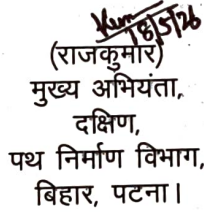 18/5/26
(राजकुमार)
मुख्य अभियंता,
दक्षिण,
पथ निर्माण विभाग,
बिहार, पटना।